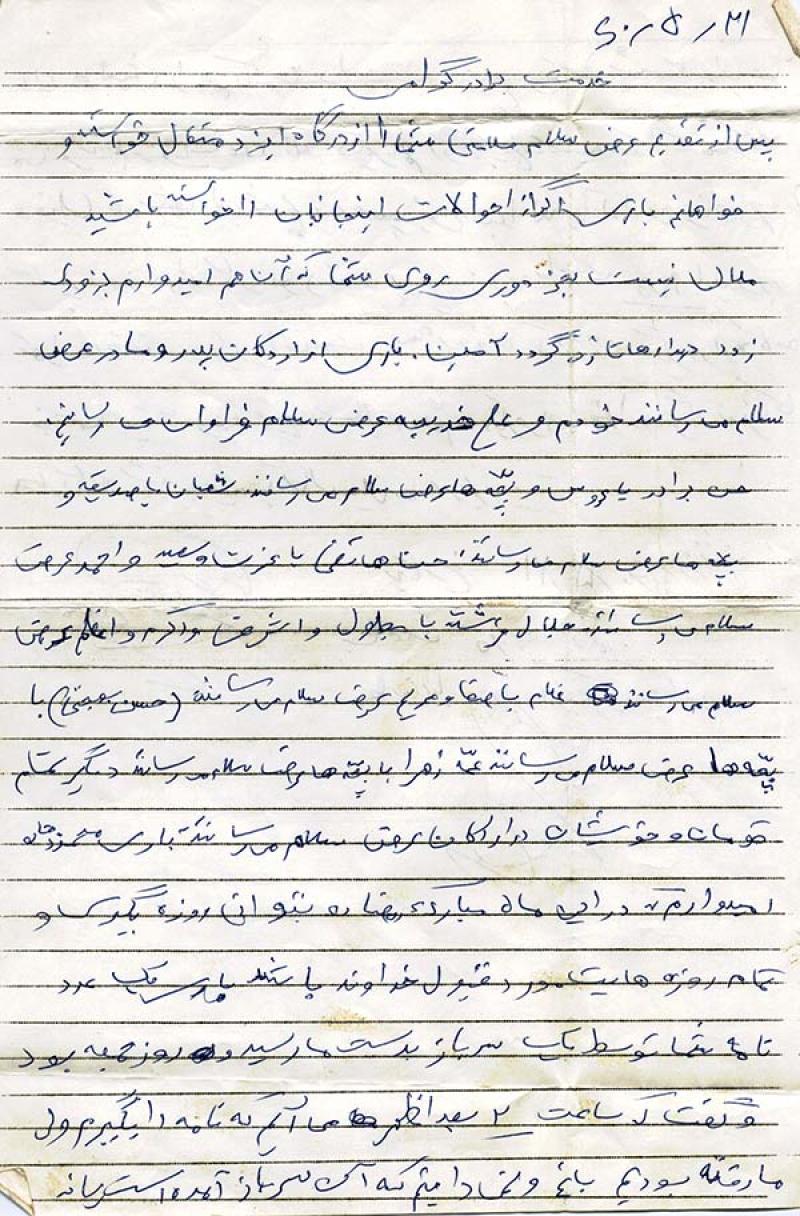 ۶۰/۵/۳۱
خدمت برادر گرامی
پس از تقدیم عرض سلام سلامتی شما را از درگاه ایزد متعال خواسته و
خواهانم باری اگر از احوالات اینجانبان را خواسته باشید
ملالی نیست بجز دوری روی شما که آن هم امیدوارم بزودی
زود دیدارها تازه گردد آمین. باری از اردکان پدر و مادر عرض
سلام می رسانند خودم و خدیجه عرض سلام فراوان می رسانیم.
حسن برادر با عروس و بچّه ها عرض سلام می رسانند. شعبان با صدیقه و
بچه ها عرض سلام می رسانند با عزت و سعید و احمد عرض
سلام می رسانند با بطول و اشرف و اکرم و اعظم عرض
سلام می رسانند غلام با صفا و مریم عرض سلام می رسانند (حسن) با
بچّه ها عرض سلام می رسانند عمّه زهرا با بچّه ها عرض سلام می رسانند دیگر تمام
قومان و خویشان در اردکان عرض سلام می رسانند باری محمود جان
امیدوارم که در این ماه مبارک رمضان بتوانی روزه بگیری و
تمام روزه هایت مورد قبول خداوند باشند باری یک عدد
نامه شما توسط یک سرباز بدست ما رسید و روز جمعه بود
و گفت که ساعت ۲ بعد از ظهر می آیم که نامه را بگیرم ولی
ما رفته بودیم باغ و نمی دانیم که آن سرباز آمده است یا نه